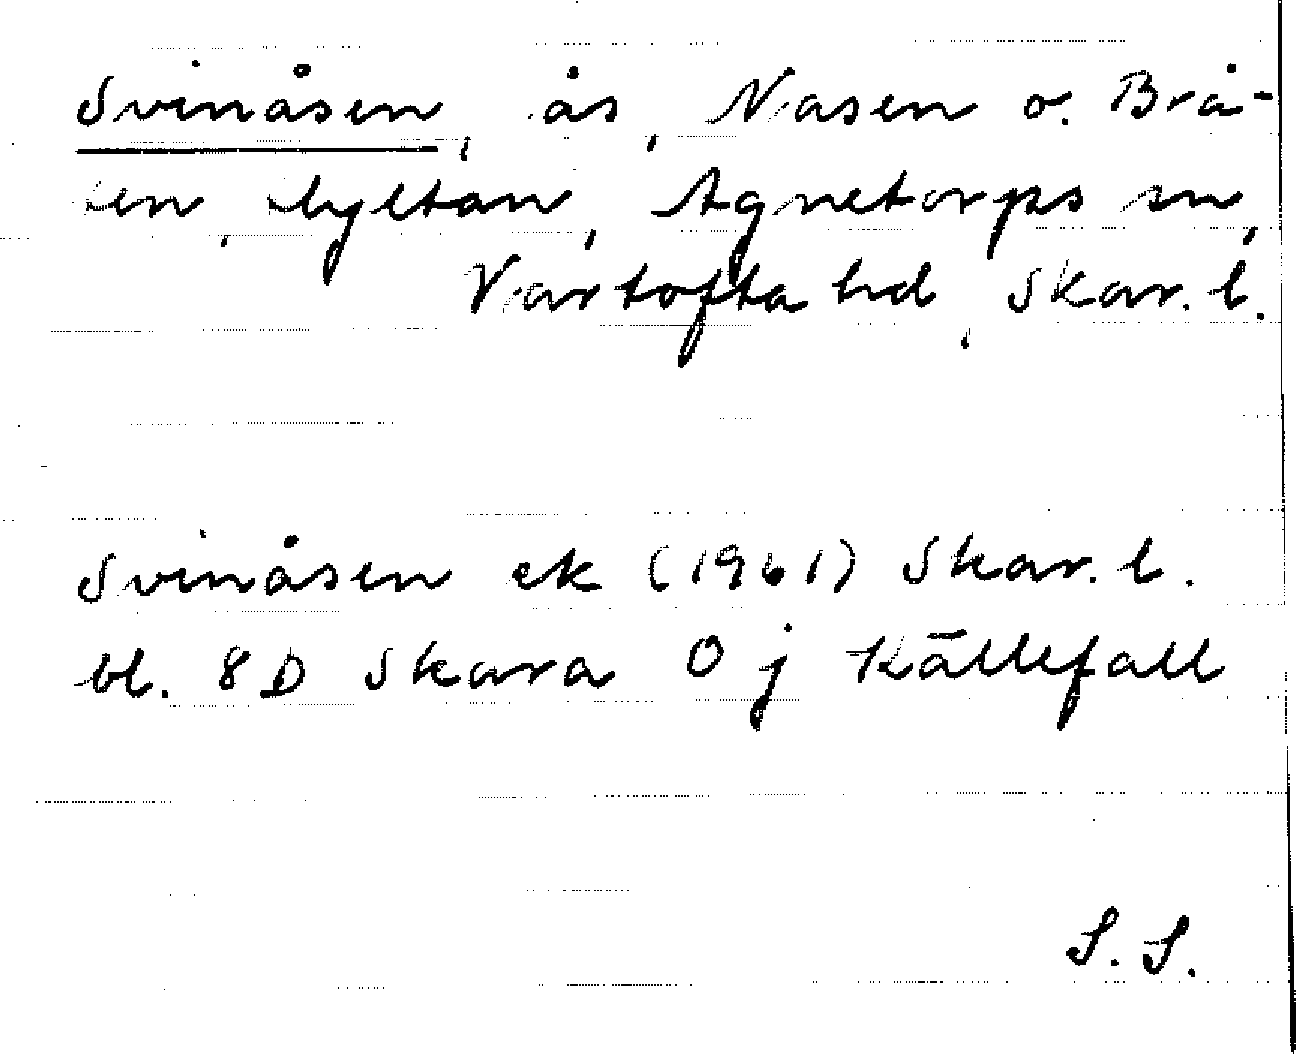 Svinåsen, ås, Nasen o. Brå-
ten, hyltan, Agnetorps sn,
Vartofta hd, Skar. l.
Svinåsen ek (1961) Skar. l.
bl. 8D Skara 0 j Källefall
S. S.